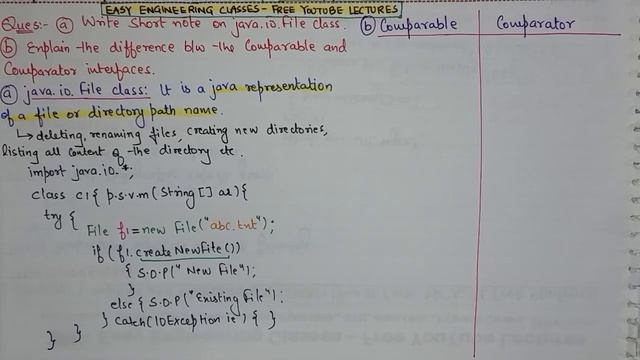 EASY ENGINEERING CLASSES - FREE YOUTUBE LECTURES
Ques:- (a) Write Short note on java.io.File class.
(b) Explain the difference b/w the Comparable and
Comparator interfaces.
(a) java.io.File class: It is a java representation
of a file or directory path name.
↳ deleting, renaming files, creating new directories,
listing all content of the directory etc.
import java.io.*;
class C1 { p.s.v.m (String [] ar) {
try {
File f1 = new File("abc.txt");
if (f1.createNewFile())
{ S.O.P(" New File");
}
else { S.O.P("Existing File");
} catch (IOException ie) { }
} }
(b) Comparable
Comparator